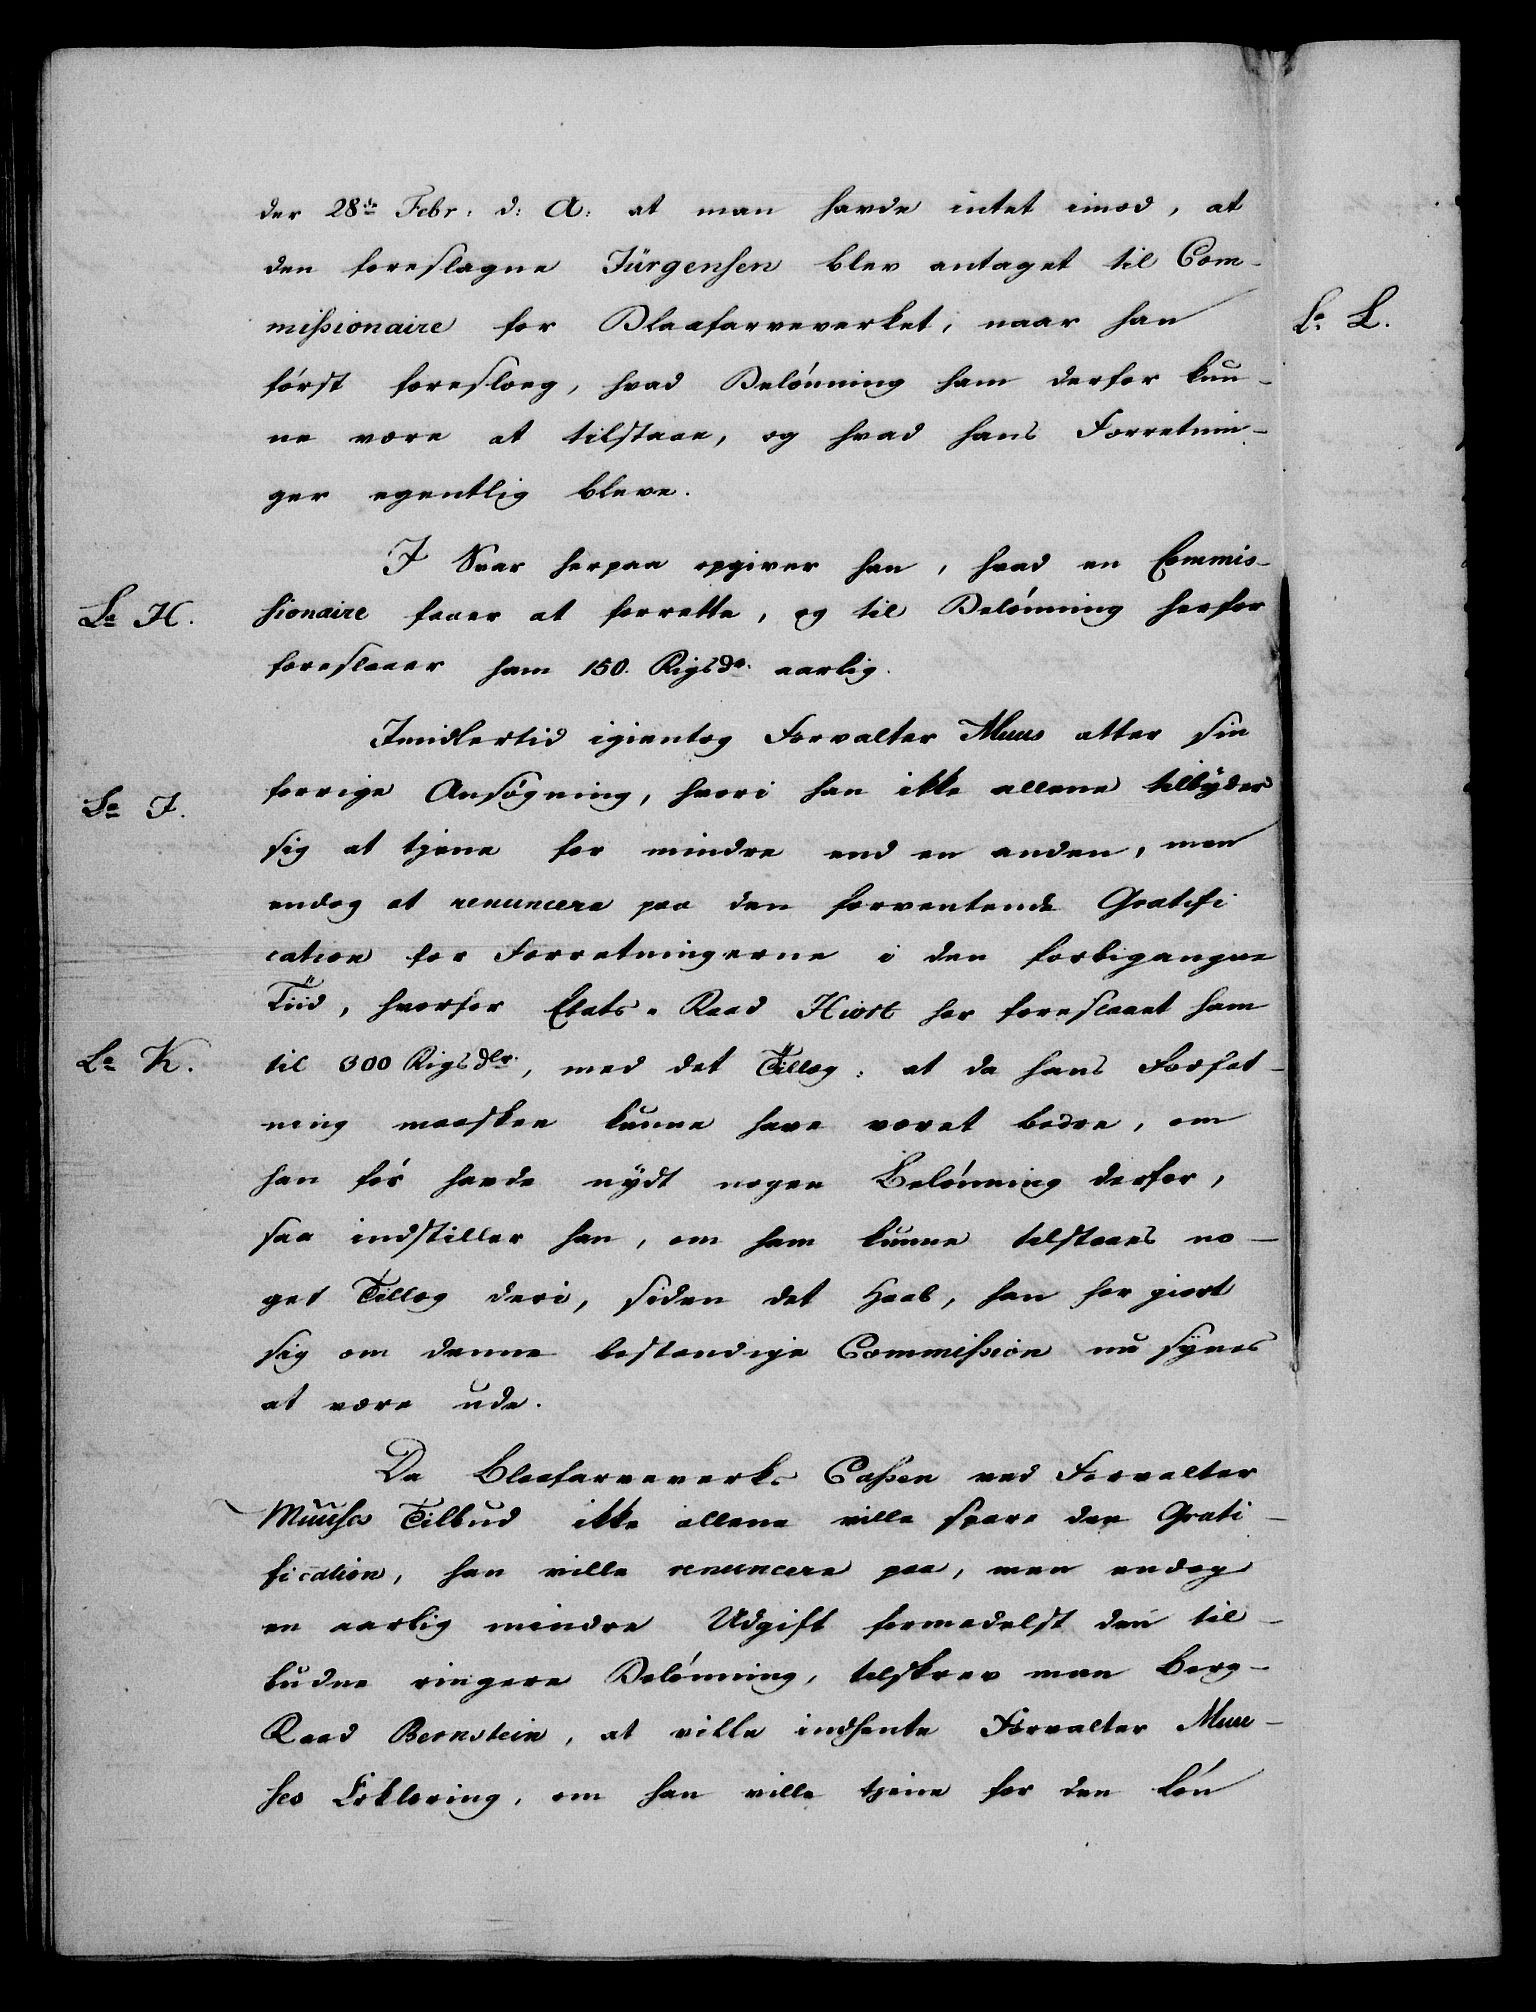 der 28de Febr: d: A: at man havde intet imod, at
den foreslagne Jürgensen blev antaget til Com-
missionaire for Blaafarveverket, naar han
først foreslog, hvad Belønning ham derfor kun-
ne være at tilstaae, og hvad hans Forretnin-
ger egentlig bleve.
I Svar herpaa opgiver han, hvad en Commis-
La H.
sionaire faaer at forrette, og til Belønning herfor
foreslaaer ham 150. Rigsdr. aarlig.
Imidlertid igientog Forvalter Muus atter sin
La I.
forrige Ansøgning, hvori han ikke allene tilbyder
sig at tjene for mindre end en anden, men
endog at renuncere paa den forventende Gratifi
cation for Forretningerne i den forbigangne
Tiid, hvorfor Etats-Raad Hiort har foreslaaet ham
La K.
til 300 Rigsdlr., med det Tillæg: at da hans Forfat-
ning maaskee kunne have været bedre, om
han før havde nydt nogen Belønning derfor,
saa indstiller han, om ham kunne tilstaaes no-
get Tillæg deri, siden det Haab, han har giort
sig om denne bestændige Commission nu synes
at være ude.
Da Blaafarveverks Cassen ved Forvalter
Muuses Tilbud ikke allene ville spare den Grati-
fication, han ville renuncere paa, men endog
en aarlig mindre Udgift formedelst den til-
budne ringere Belønning, tilskrev man Berg-
Raad Bernstein, at ville indhente Forvalter Muu-
ses Erklæring, om han ville tjene for den Løn
La L.